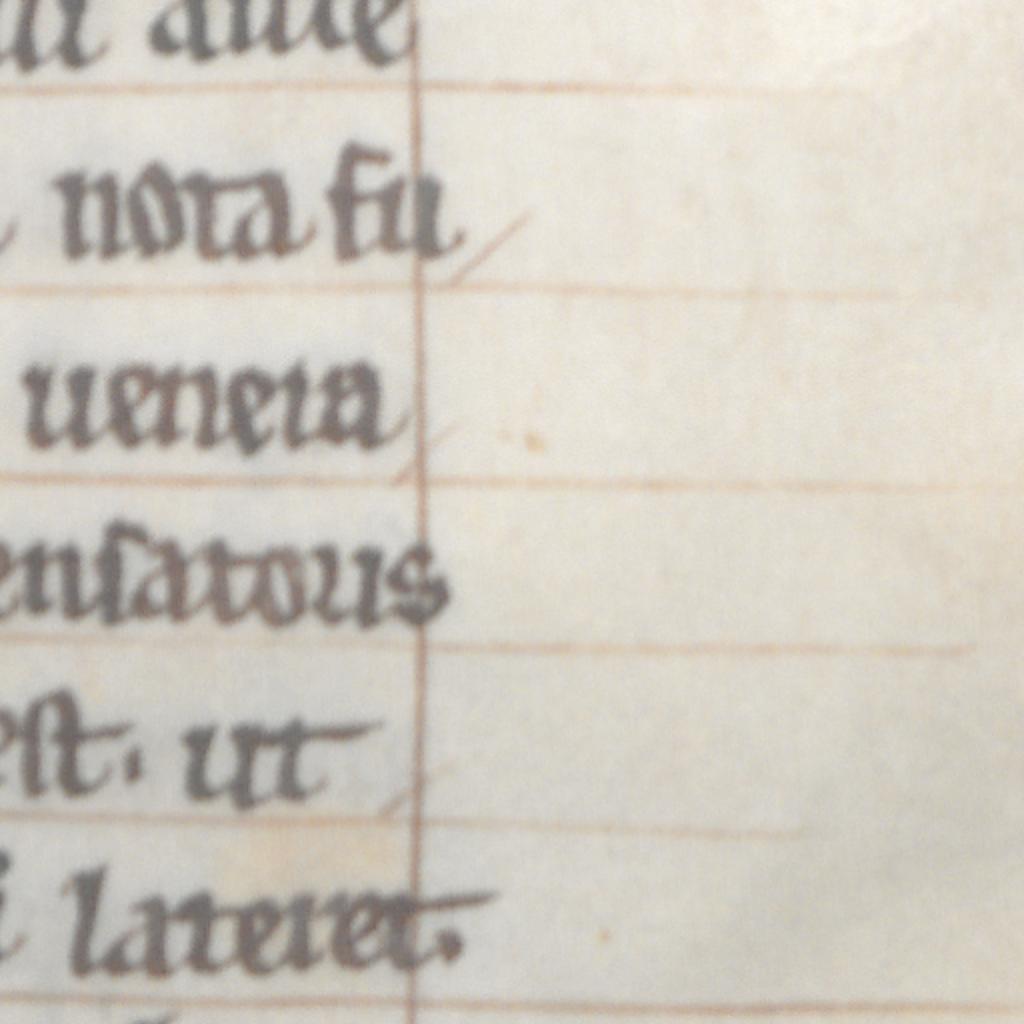 ante
nota fu
uenera
ensatoris
est. ut
i lateret.